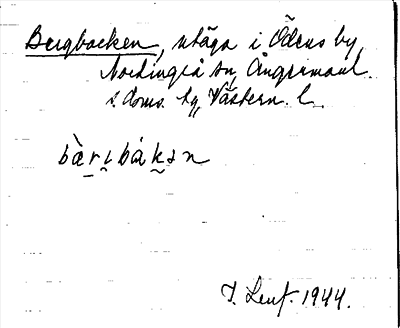 Bergbacken, utäga i Ödens by
Nordingrå sn, Ångermanl.
s. doms. tg, Västern. l.
bæ̀rɩbákən
1944.